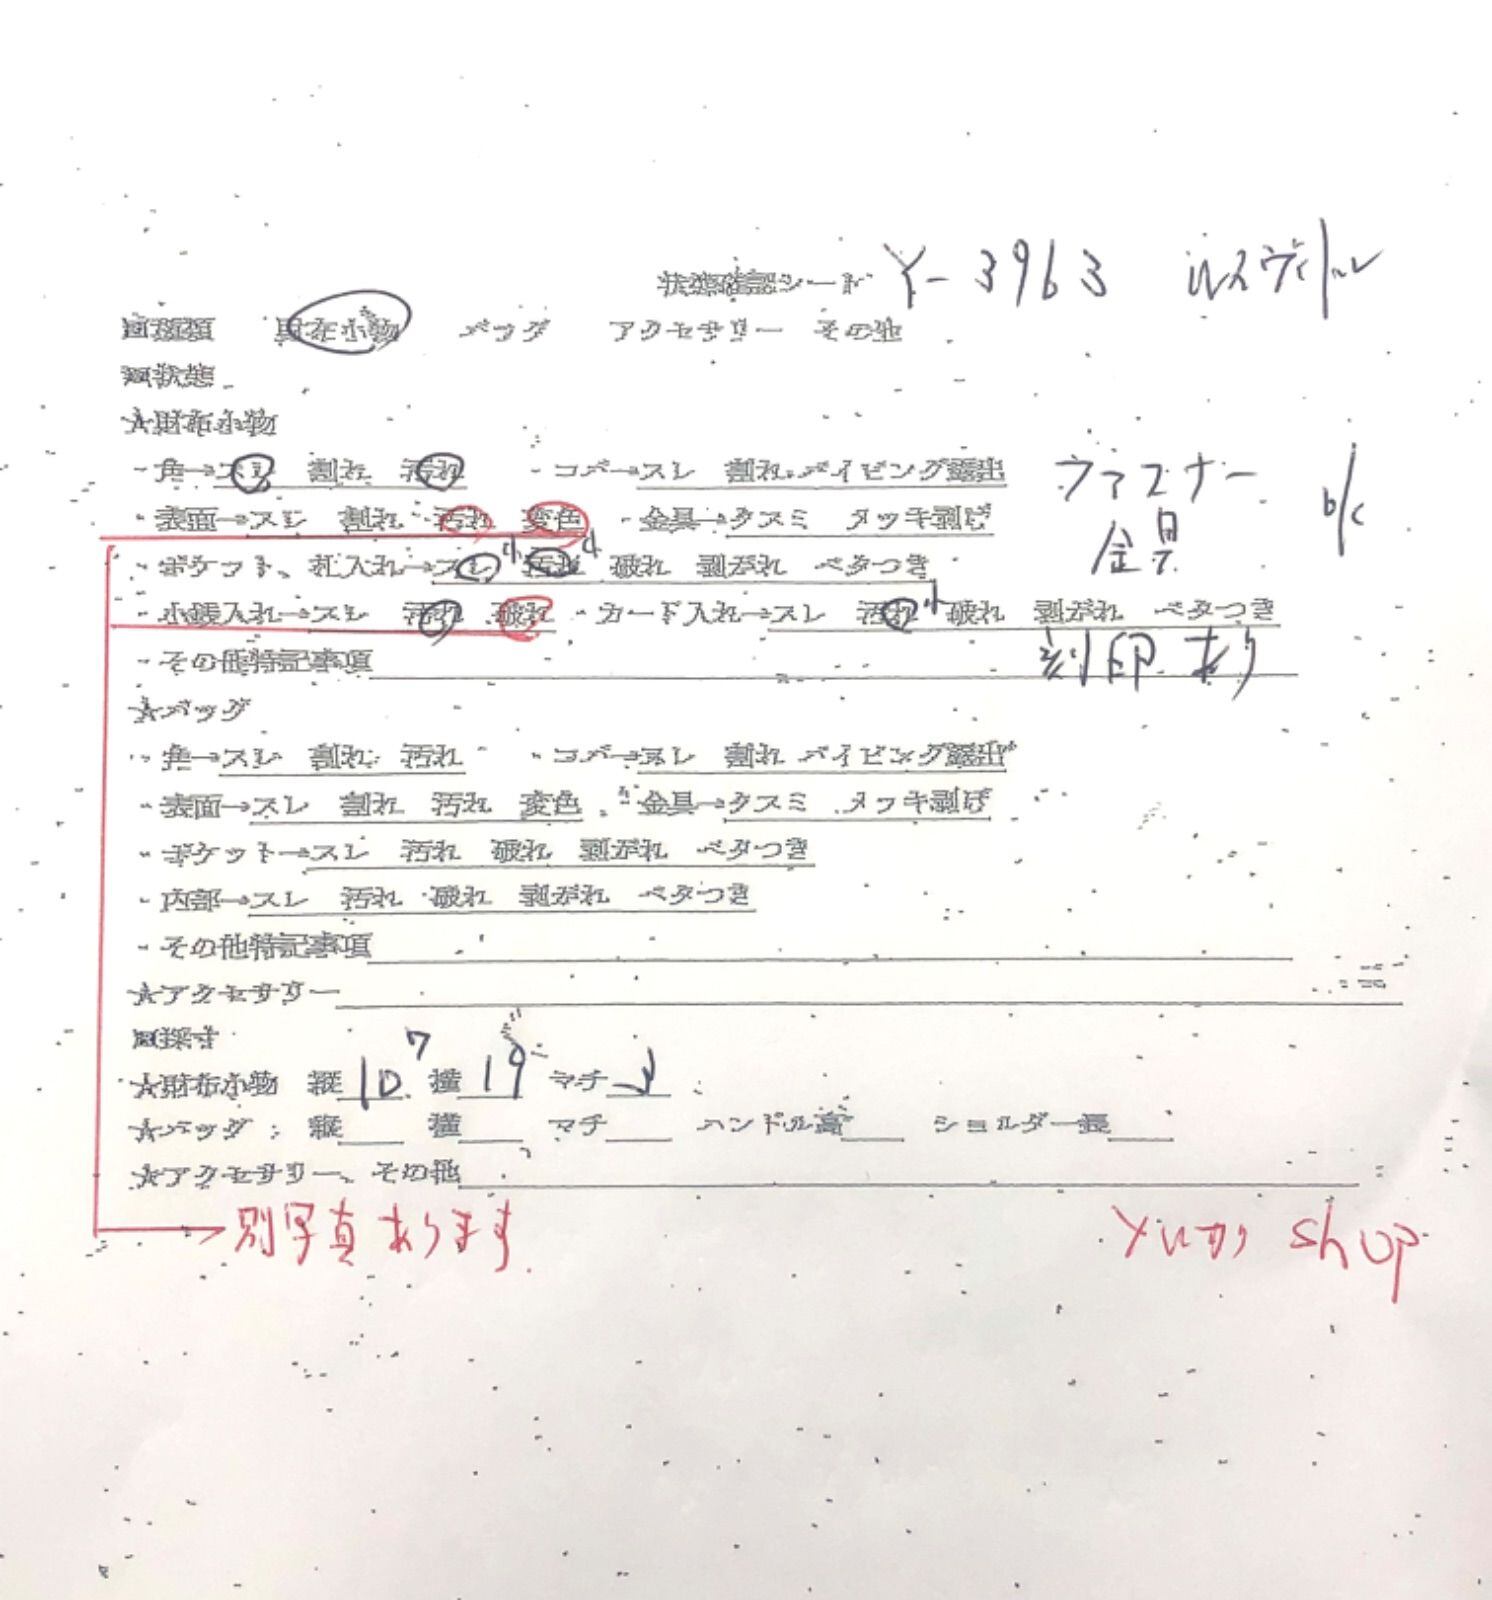 状態確認シート Y-3963
■種類 財布小物 バッグ アクセサリー その他
■状態
★財布小物
・角→スレ 割れ 汚れ ・コバ→スレ 割れ パイピング露出 ファスナー b/c
・表面→スレ 割れ 汚れ 変色 ・金具→クスミ メッキ剥げ 金具
・ポケット、札入れ→スレ 小 汚れ 小 破れ 剥がれ ベタつき
・小銭入れ→スレ 汚れ 破れ ・カード入れ→スレ 汚れ 小 破れ 剥がれ ベタつき
・その他特記事項 刻印あり
★バッグ
・角→スレ 割れ 汚れ ・コバ→スレ 割れ パイピング露出
・表面→スレ 割れ 汚れ 変色 ・金具→クスミ メッキ剥げ
・ポケット→スレ 汚れ 破れ 剥がれ ベタつき
・内部→スレ 汚れ 破れ 剥がれ ベタつき
・その他特記事項
★アクセサリー
■採寸
★財布小物 縦 10.7 横 19 マチ
★バッグ: 縦 横 マチ ハンドル高 ショルダー長
★アクセサリー、その他
別写真あります shop